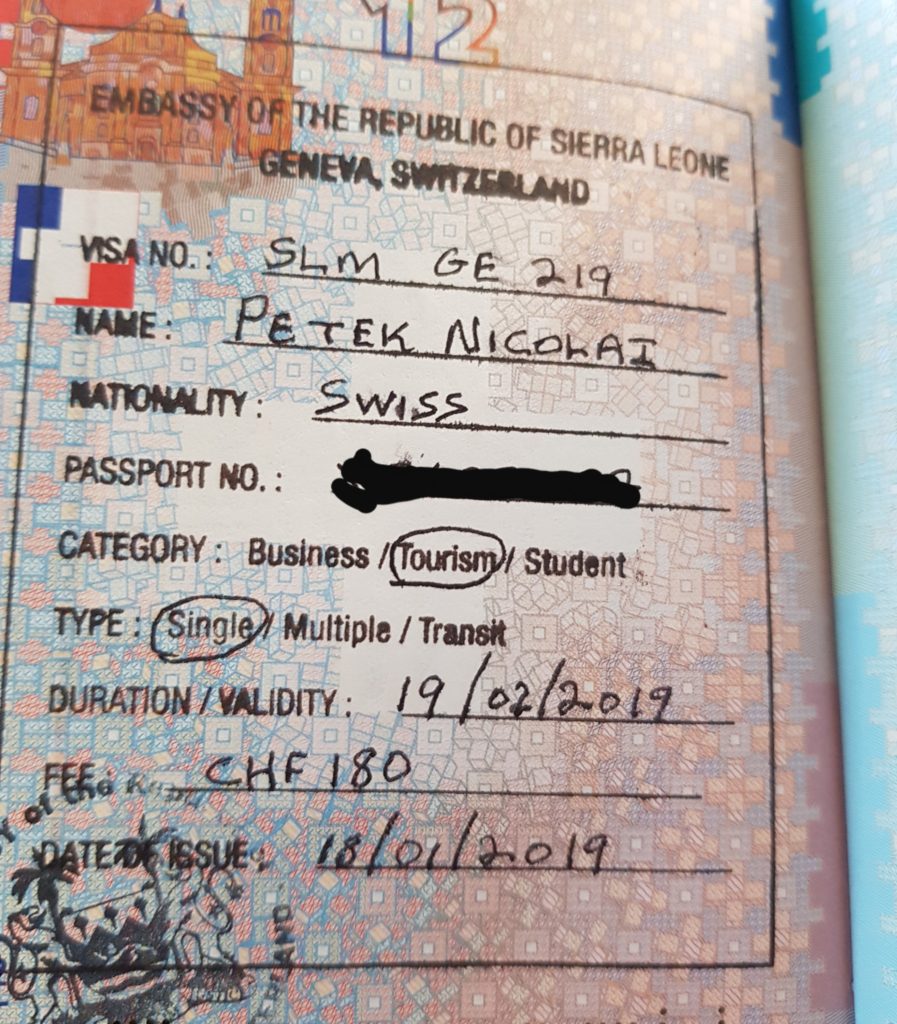 12
EMBASSY OF THE REPUBLIC OF SIERRA LEONE
GENEVA, SWITZERLAND
VISA NO.: SLM GE 219
NAME: PETEK NICOLAI
NATIONALITY: SWISS
PASSPORT NO.:
CATEGORY: Business / Tourism / Student
TYPE: Single / Multiple / Transit
DURATION / VALIDITY: 19/02/2019
FEE: CHF 180
of the
DATE OF ISSUE: 18/01/2019